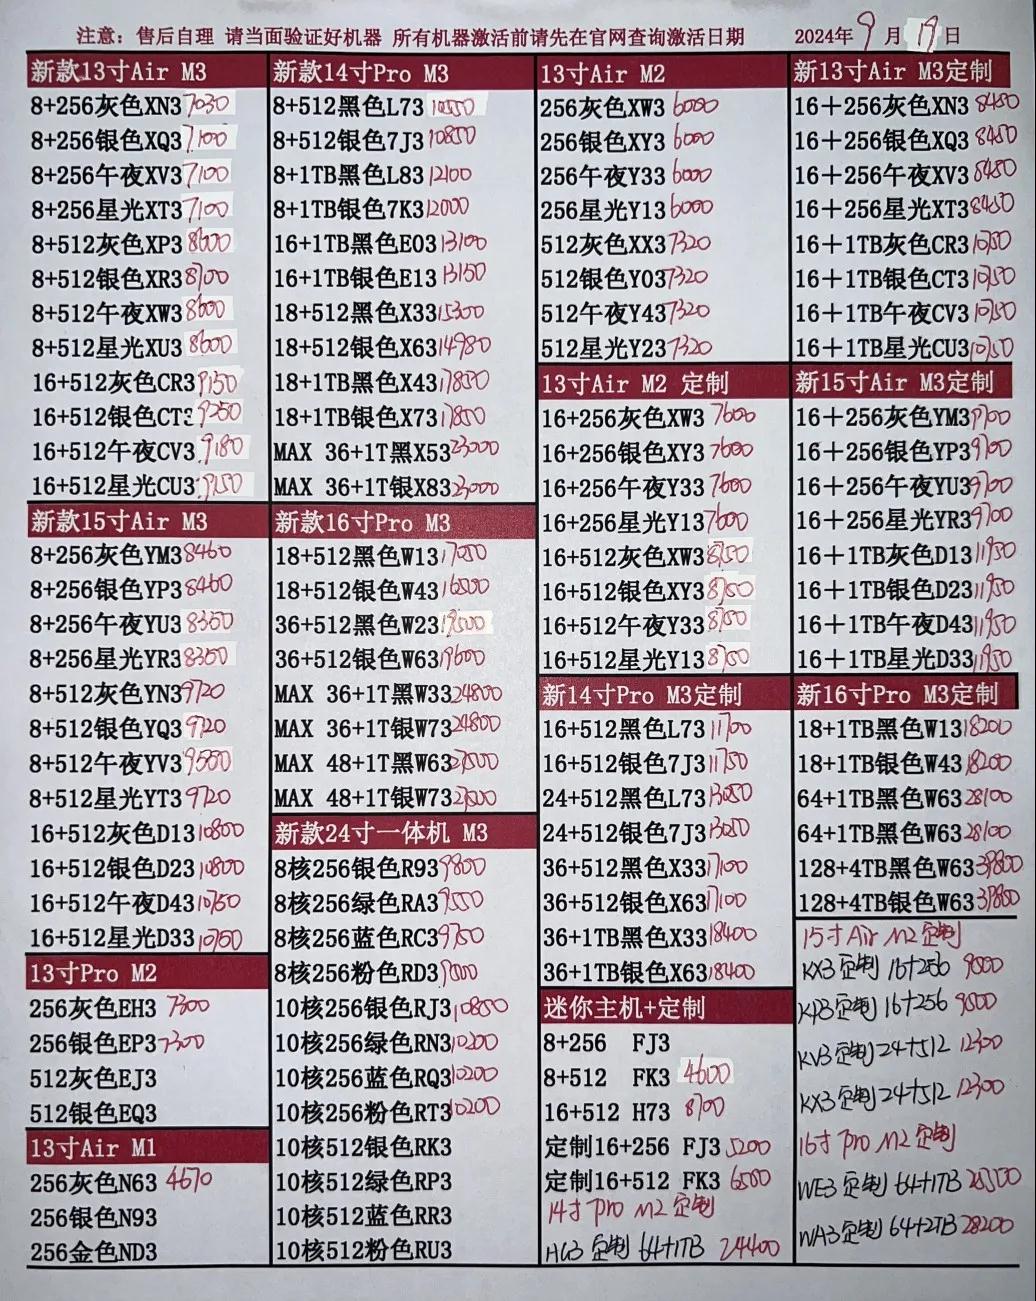 注意：售后自理 请当面验证好机器 所有机器激活前请先在官网查询激活日期 2024年9月19日
新款13寸Air M3
8+256灰色XN3 7030
8+256银色XQ3 7100
8+256午夜XV3 7100
8+256星光XT3 7100
8+512灰色XP3 8600
8+512银色XR3 8700
8+512午夜XW3 8600
8+512星光XU3 8600
16+512灰色CR3 9150
16+512银色CT3 9250
16+512午夜CV3 9180
16+512星光CU3 9150
新款15寸Air M3
8+256灰色YM3 8460
8+256银色YP3 8460
8+256午夜YU3 8350
8+256星光YR3 8350
8+512灰色YN3 9720
8+512银色YQ3 9720
8+512午夜YV3 9550
8+512星光YT3 9720
16+512灰色D13 10800
16+512银色D23 10800
16+512午夜D43 10750
16+512星光D33 10750
13寸Pro M2
256灰色EH3 7300
256银色EP3 7300
512灰色EJ3
512银色EQ3
13寸Air M1
256灰色N63 4670
256银色N93
256金色ND3
新款14寸Pro M3
8+512黑色L73 10550
8+512银色7J3 10850
8+1TB黑色L83 12100
8+1TB银色7K3 12000
16+1TB黑色E03 13100
16+1TB银色E13 13150
18+512黑色X33 15300
18+512银色X63 14980
18+1TB黑色X43 17850
18+1TB银色X73 17850
MAX 36+1T黑X53 23000
MAX 36+1T银X83 23000
新款16寸Pro M3
18+512黑色W13 17050
18+512银色W43
36+512黑色W23 19500
36+512银色W63 19600
MAX 36+1T黑W33 24800
MAX 36+1T银W73 24800
MAX 48+1T黑W63 27500
MAX 48+1T银W73
新款24寸一体机 M3
8核256银色R93 9800
8核256绿色RA3 9550
8核256蓝色RC3 9750
8核256粉色RD3
10核256银色RJ3 10850
10核256绿色RN3 10200
10核256蓝色RQ3 10200
10核256粉色RT3 10200
10核512银色RK3
10核512绿色RP3
10核512蓝色RR3
10核512粉色RU3
13寸Air M2
256灰色XW3 6000
256银色XY3 6000
256午夜Y33 6000
256星光Y13 6000
512灰色XX3 7320
512银色Y03 7320
512午夜Y43 7320
512星光Y23 7320
13寸Air M2 定制
16+256灰色XW3 7600
16+256银色XY3 7600
16+256午夜Y33 7600
16+256星光Y13 7600
16+512灰色XW3 8750
16+512银色XY3 8750
16+512午夜Y33 8750
16+512星光Y13 8750
新14寸Pro M3定制
16+512黑色L73 11700
16+512银色7J3 11750
24+512黑色L73 13050
24+512银色7J3 13050
36+512黑色X33 17100
36+512银色X63 17100
36+1TB黑色X33 18400
36+1TB银色X63 18400
迷你主机+定制
8+256 FJ3
8+512 FK3 4600
16+512 H73 8700
定制16+256 FJ3 5200
定制16+512 FK3 6580
14寸 Pro M2 定制
HG3 定制 64+1TB 24400
新13寸Air M3定制
16＋256灰色XN3 8450
16＋256银色XQ3 8450
16＋256午夜XV3 8450
16＋256星光XT3 8450
16＋1TB灰色CR3 10750
16＋1TB银色CT3 10750
16＋1TB午夜CV3 10750
16＋1TB星光CU3 10750
新15寸Air M3定制
16＋256灰色YM3 9700
16＋256银色YP3 9700
16＋256午夜YU3 9700
16＋256星光YR3 9700
16＋1TB灰色D13 11950
16＋1TB银色D23 11950
16＋1TB午夜D43 11950
16＋1TB星光D33 11950
新16寸Pro M3定制
18+1TB黑色W13 18200
18+1TB银色W43 18200
64+1TB黑色W63 28100
64+1TB黑色W63 28100
128+4TB黑色W63 39800
128+4TB银色W63 39800
15寸 Air M2 定制
KX3 定制 16+256 9500
KP3 定制 16+256 9500
KV3 定制 24+512 12300
KX3 定制 24+512 12300
16寸 Pro M2 定制
WE3 定制 64+1TB 25500
WA3 定制 64+2TB 28200